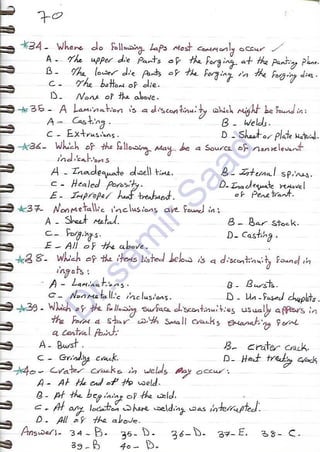 70
*34 - Where do following Laps most commonly occur
A - The upper die parts of the forging at the parting plane.
B - The lower die parts of the forging in the forging dies.
C - The bottom of die.
D - None of the above.
*35 - A Lamination is a discontinuity which might be found in:
A - Casting. B - Welds.
C - Extrusions. D - Sheet or plate material.
*36 - Which of the following may be a source of nonrelevant
indications
A - Inadequate dwell time. B - Internal splines.
C - Healed porosity. D - Inadequate removal
of Penetrant.
E - Improper heat treatment.
*37 - Nonmetallic inclusions are found in:
A - Sheet metal. B - Bar stock.
C - Forgings. D - Casting.
E - All of the above.
*38 - Which of the items listed below is a discontinuity found in
ingots:
A - Laminations. B - Bursts.
C - Nonmetallic inclusions. D - Un-fused chaplets.
*39 - Which of the following surface discontinuities usually appears in
the form a star with small cracks emanating form
a central point:
A - Burst. B - crater crack
C - Grinding crack. D - Heat treating crack
*40 - Crater cracks in welds may occur:
A - At the end of the weld.
B - At the begining of the weld.
C - At any location where welding was interrupted.
D - All of the above.
Answer:- 34 - B. 35 - D. 36 - D. 37 - E. 38 - C.
39 - B 40 - D.
Samir Saad